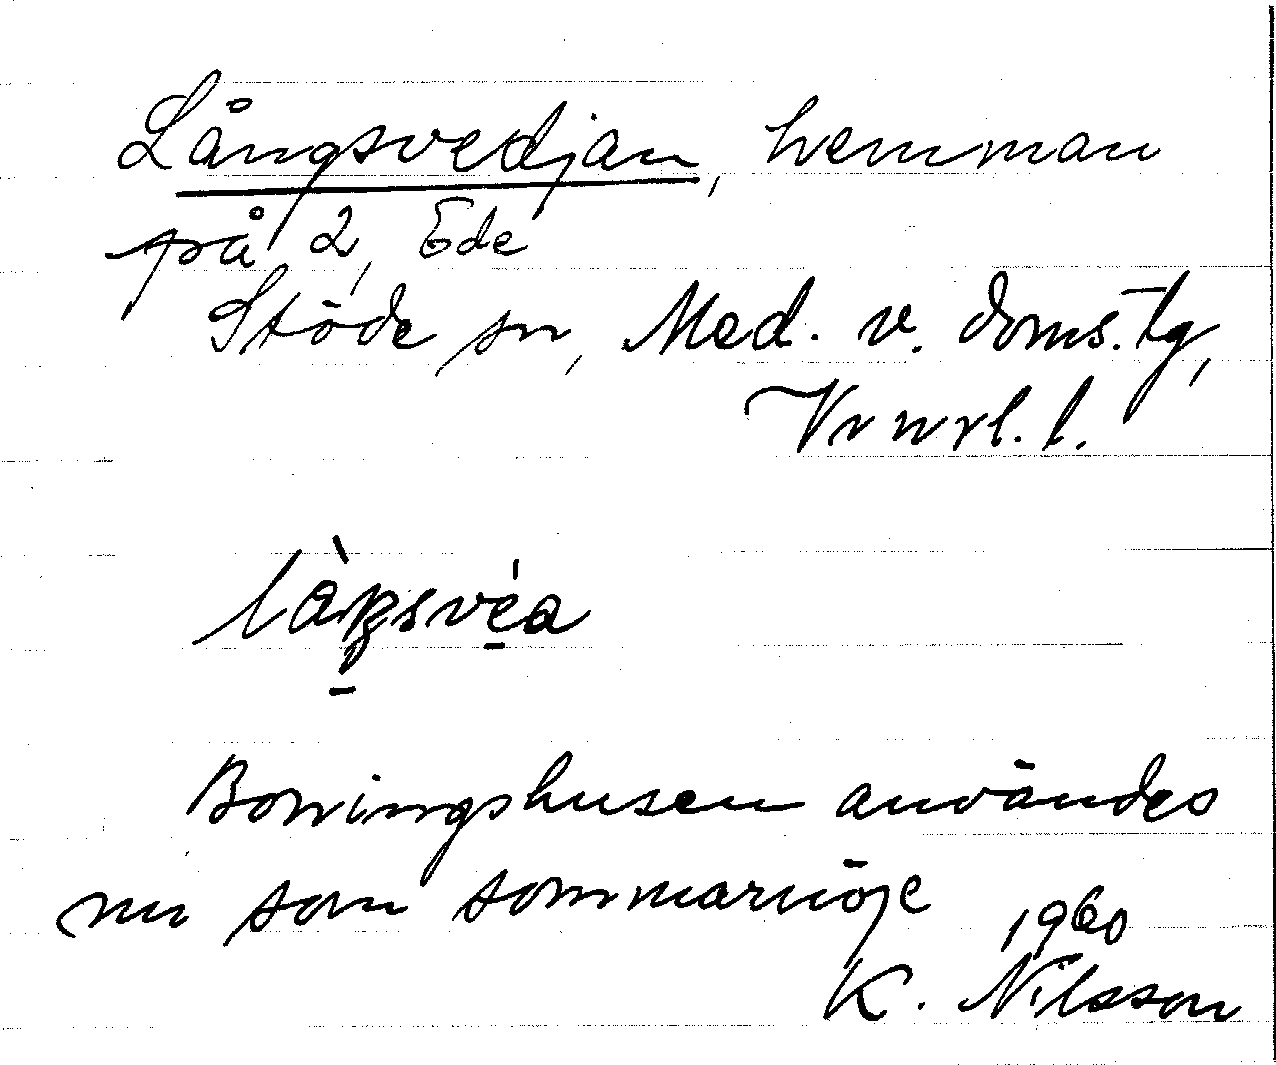 Långsvedjan, hemman
på 2, Ede
Stöde sn, Med. v. doms. tg,
Vrnrl. l.
Boningshusen användes
nu som sommarnöje 1960
K. Nilsson